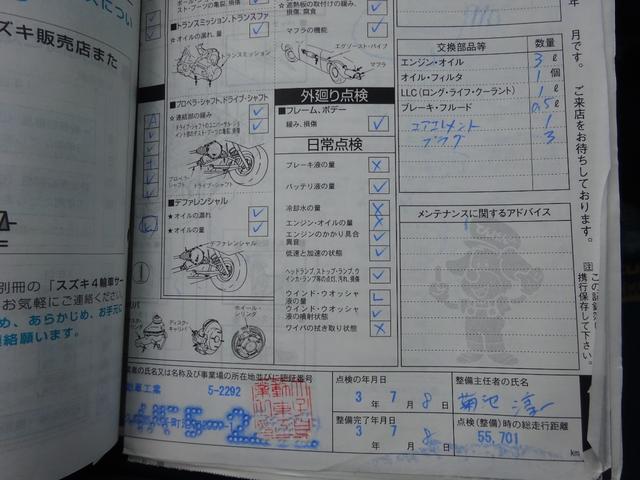 ズキ販売店また
別冊の「スズキ４輪車サー
お気軽にご連絡ください。
め、あらかじめ、お手元に
連絡願います。
トランスミッション、トランスファ
☆オイルの漏れ、量
トランスミッション
プロペラ・シャフト、ドライブ・シャフト
☆連結部の緩み
ドライブ・シャフトのユニバーサル・ジョ
イント部のダスト・ブーツの亀裂、損傷
プロペラ・シャフト
ドライブ・シャフト
デファレンシャル
★オイルの漏れ
★オイルの量
デファレンシャル
ディスク・キャリパ
ホイール・シリンダ
☆遮熱板の取付けの緩み、
損傷、腐食
マフラの機能
エグゾースト・パイプ
マフラ
外廻り点検
フレーム、ボデー
緩み、損傷
日常点検
ブレーキ液の量
バッテリ液の量
冷却水の量
エンジン・オイルの量
エンジンのかかり具合
異音
低速と加速の状態
ヘッドランプ、ストップ・ランプ、ウ
インカ・ランプ等の点灯、汚れ、損傷
ウインド・ウオッシャ
液の量
ウインド・ウオッシャ
液の噴射状態
ワイパの拭き取り状態
交換部品等 数量
エンジン・オイル 3 ℓ
オイル・フィルタ 1 個
LLC（ロング・ライフ・クーラント） 1 ℓ
ブレーキ・フルード 0.5 ℓ
エアエレメント 1
プラグ 3
メンテナンスに関するアドバイス
年 月です。ご来店をお待ちしております。
注 この記録簿は
携行保存して下さい。
業者の氏名又は名称及び事業場の所在地並びに認証番号
車工業 5-2292
点検の年月日
3 年 7 月 8 日
整備完了年月日
3 年 7 月 8 日
整備主任者の氏名
菊池 淳一
点検（整備）時の総走行距離
55,701 km